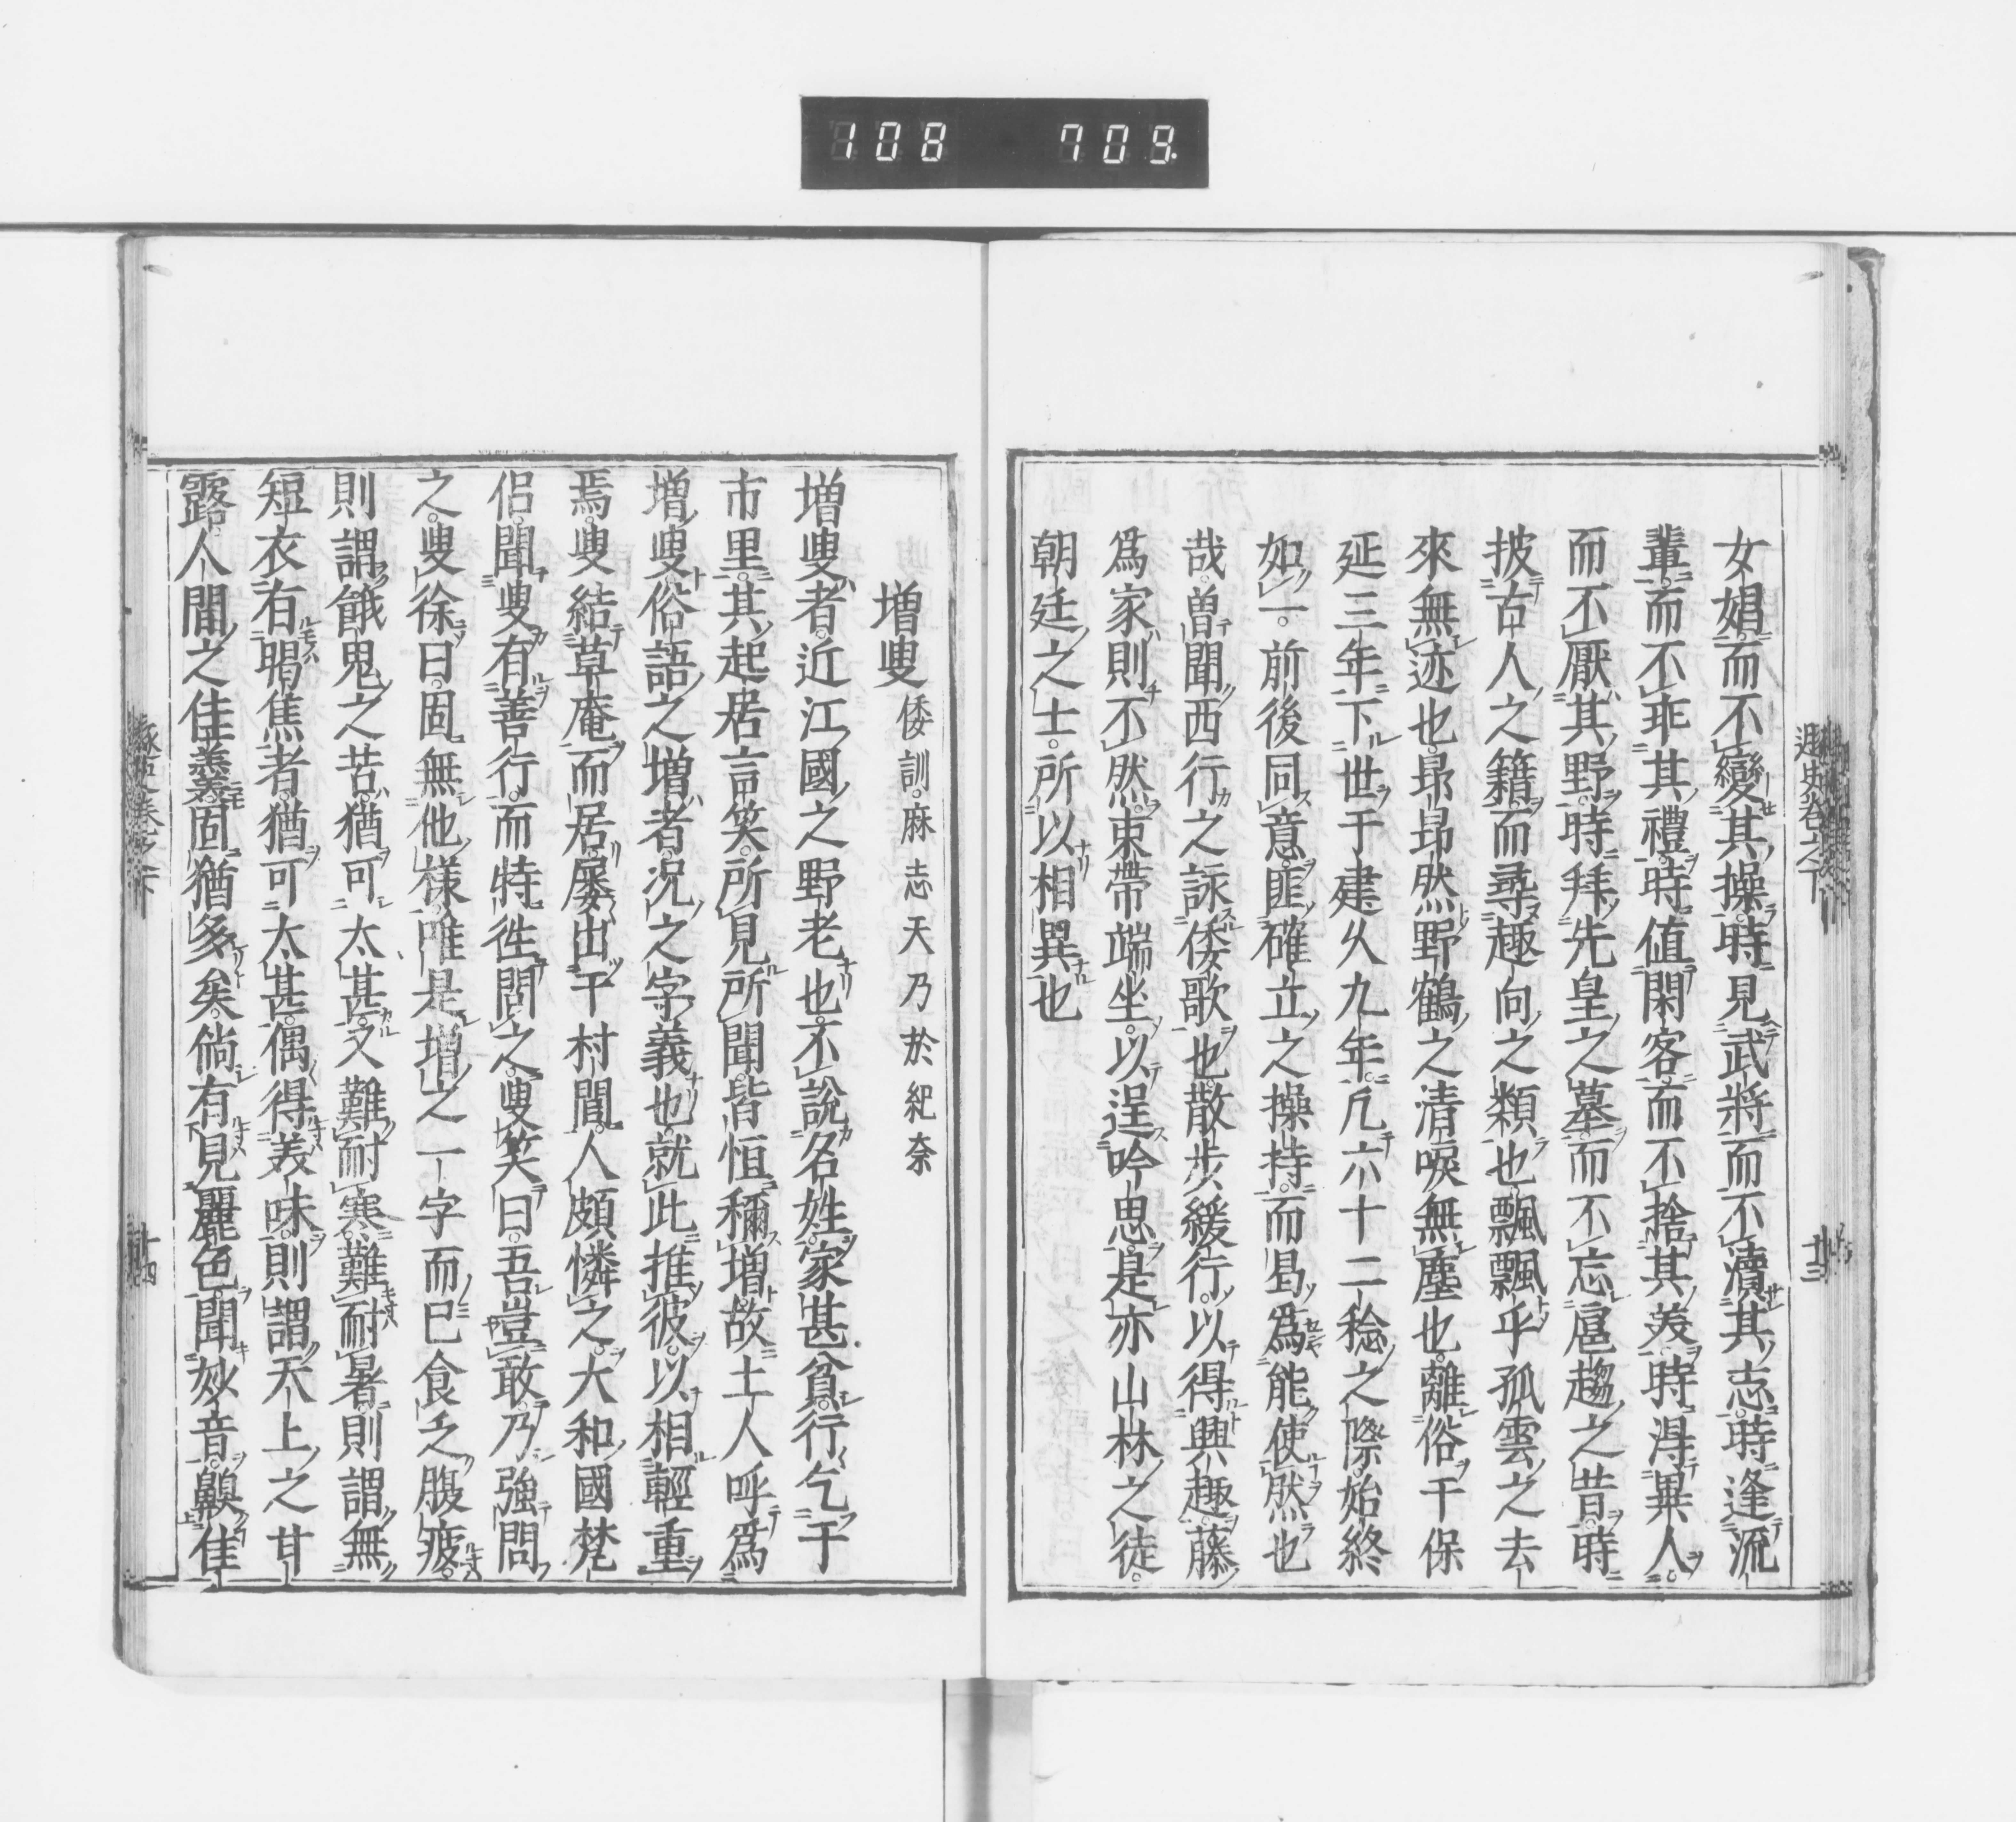 108 709.
遯史卷之下
廿三
女娼而不變其操時見武將而不瀆其志時逢流
輩而不乖其禮時値閑客而不捨其羙時淂異人
而不厭其野時拜先皇之墓而不忘扈趨之昔時
披古人之籍而尋趣向之類也飄飄乎孤雲之去
來無迹也昻昻然野鶴之清唳無塵也離俗于保
延三年下世于建久九年凢六十二稔之際始終
如一前後同意匪確立之操持而曷爲能使然也
哉曽聞西行之詠倭歌也散步緩行以得興趣藤
爲家則不然束帶端坐以逞吟思是亦山林之徒
朝廷之士所以相異也
増叟 倭訓麻志天乃於紀奈
増叟者近江國之野老也不說名姓家甚貧行乞于
市里其起居言笑所見所聞皆恒稱増故土人呼爲
増叟俗語之増者況之字義也就此推彼以相輕重
焉叟結草庵而居屡出于村閭人頗憐之大和國梵
侶聞叟有善行而特徃問之叟笑曰吾豈敢乃強問
之叟徐曰固無他樣唯是増之一字而已食乏腹疲
則謂餓鬼之苦猶可太甚又難耐寒難耐暑則謂無
短衣有暍焦者猶可太甚偶得羙味則謂天上之甘
露人間之佳羹固猶多矣倘有見麗色聞妙音齅佳
十四